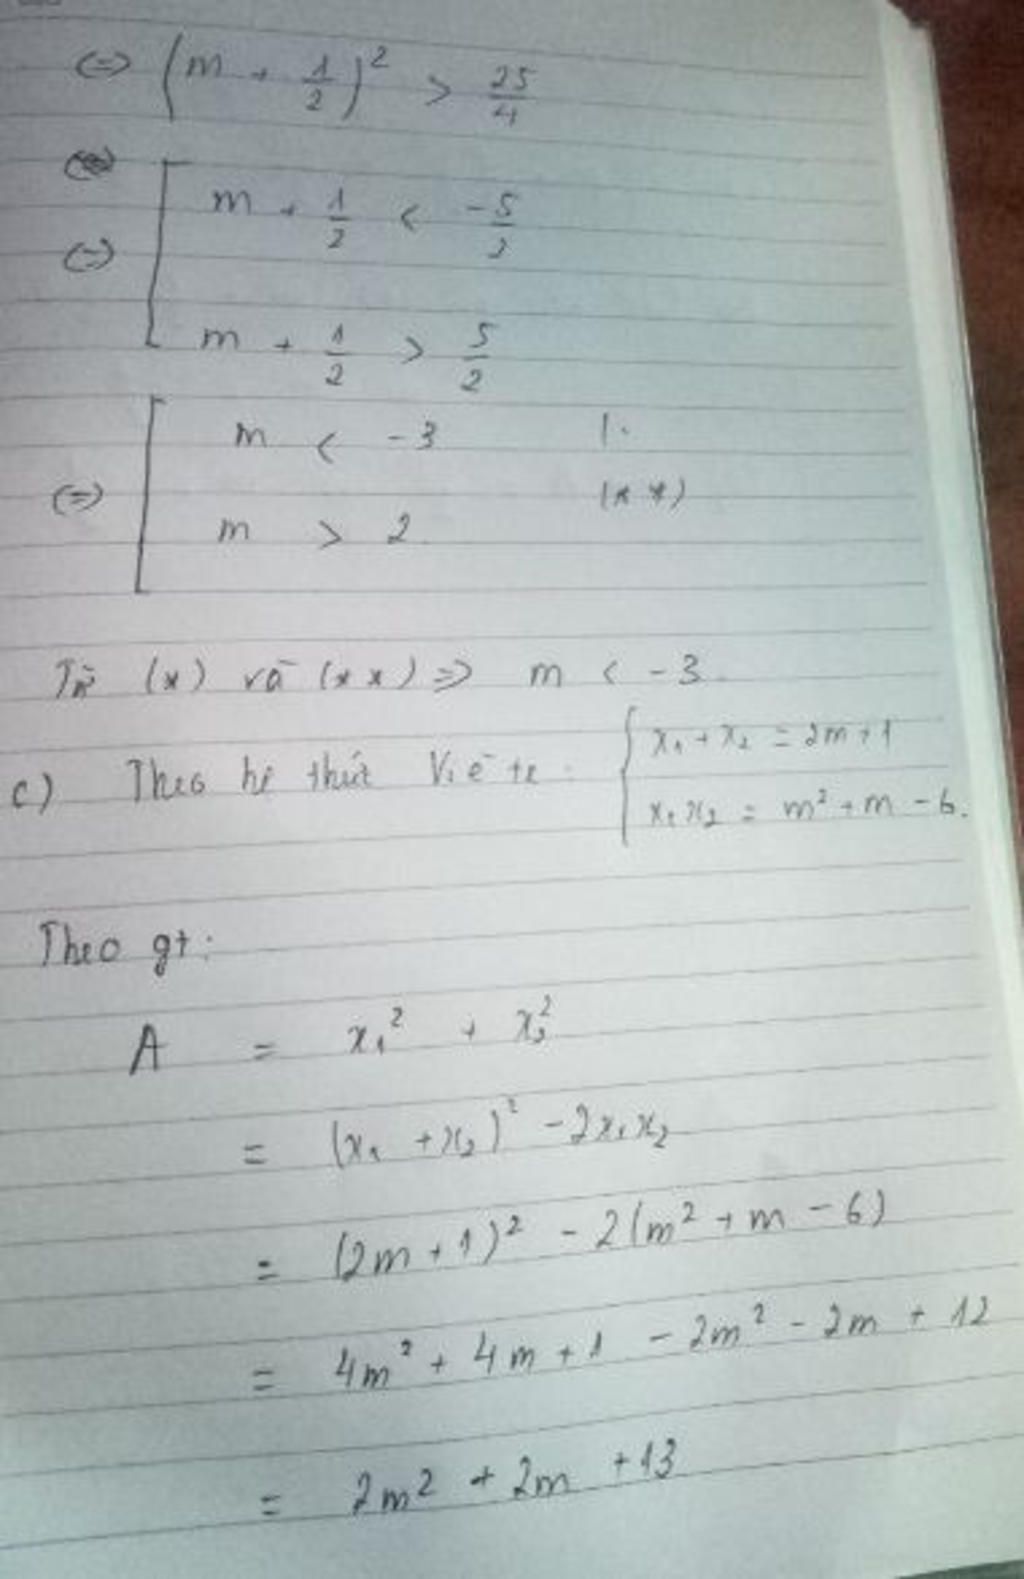 (=) (m + 1/2)² > 25/4
(=) [ m + 1/2 < -5/2
m + 1/2 > 5/2
(=) [ m < -3
m > 2 (**)
Từ (*) và (**) => m < -3.
c) Theo hệ thức Viète: { x₁ + x₂ = 2m + 1
x₁x₂ = m² + m - 6.
Theo gt:
A = x₁² + x₂²
= (x₁ + x₂)² - 2x₁x₂
= (2m + 1)² - 2(m² + m - 6)
= 4m² + 4m + 1 - 2m² - 2m + 12
= 2m² + 2m + 13